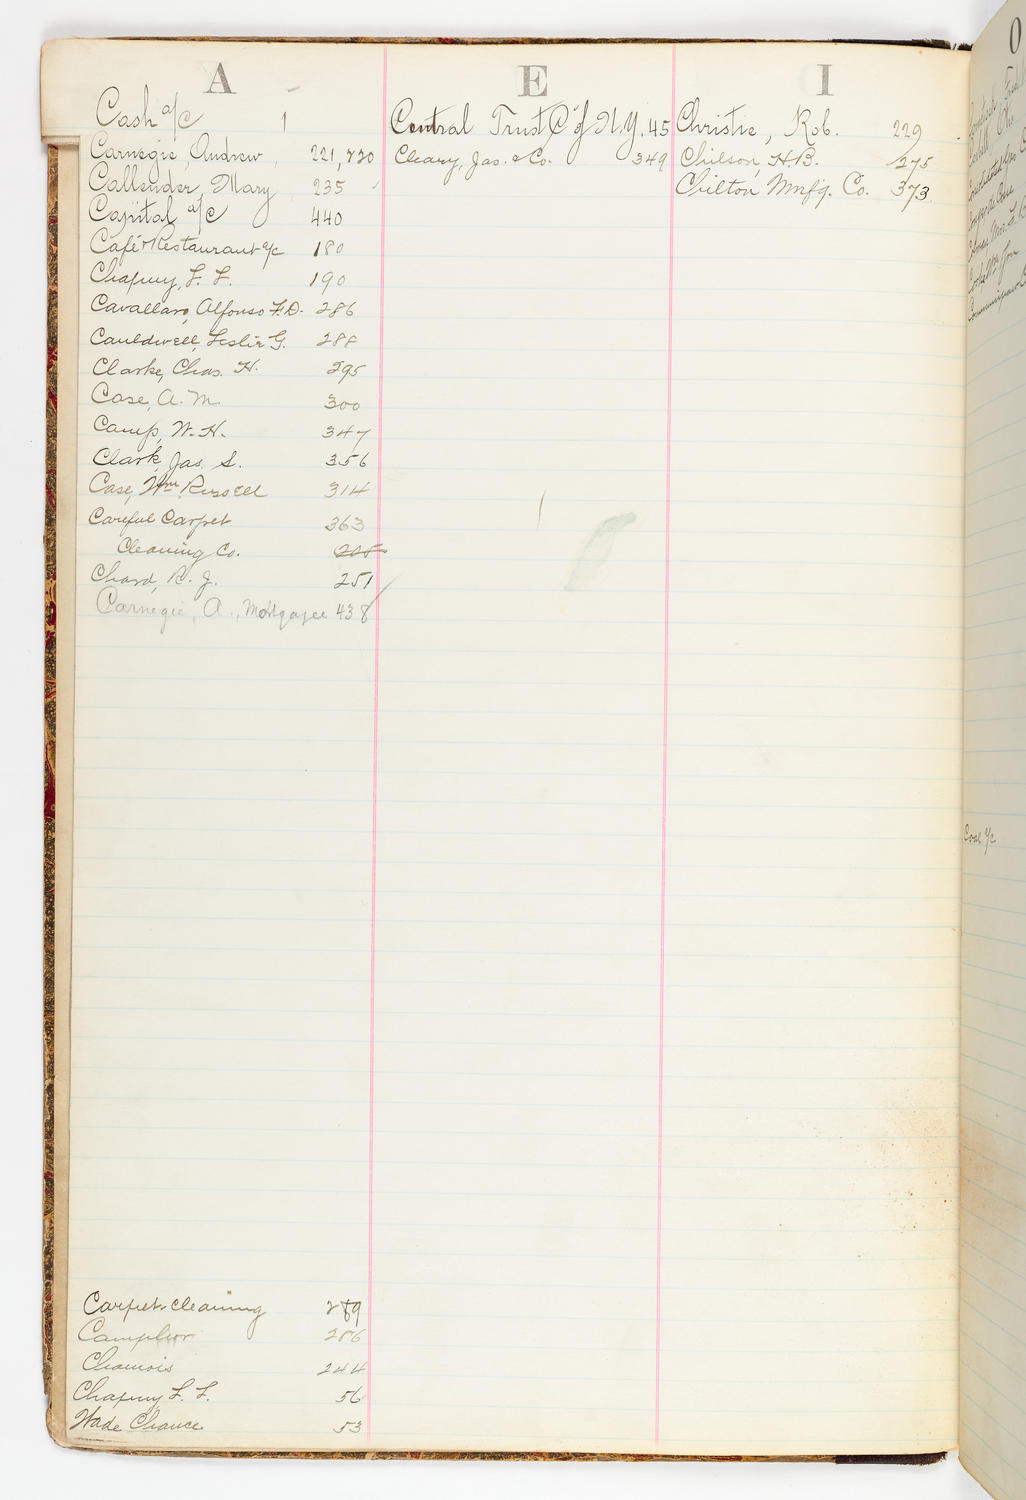 A
Cash a/c 1
Carnegie, Andrew 221, 720
Callender, Mary 235
Capital a/c 440
Café & Restaurant a/c 180
Chapuy, F. F. 190
Cavallaro, Alfonso F.D. 286
Cauldwell, Leslie G. 288
Clarke, Chas. H. 295
Case, A. M. 300
Camp, W. H. 347
Clark, Jas. S. 356
Case, Wm Russell 314
Careful Carpet 363
Cleaning Co. 205
Chard, R. J. 251
Carnegie, A., Mortgagee 438
Carpet-cleaning 289
Camphor 286
Chamois 244
Chapuy F. F. 56
Wade Chance 53
E
Central Trust Co of N.Y. 45
Cleary, Jas. & Co. 349
I
Christie, Rob. 229
Chilson, H.B. 275
Chilton Mnfg. Co. 373
O
Coal a/c